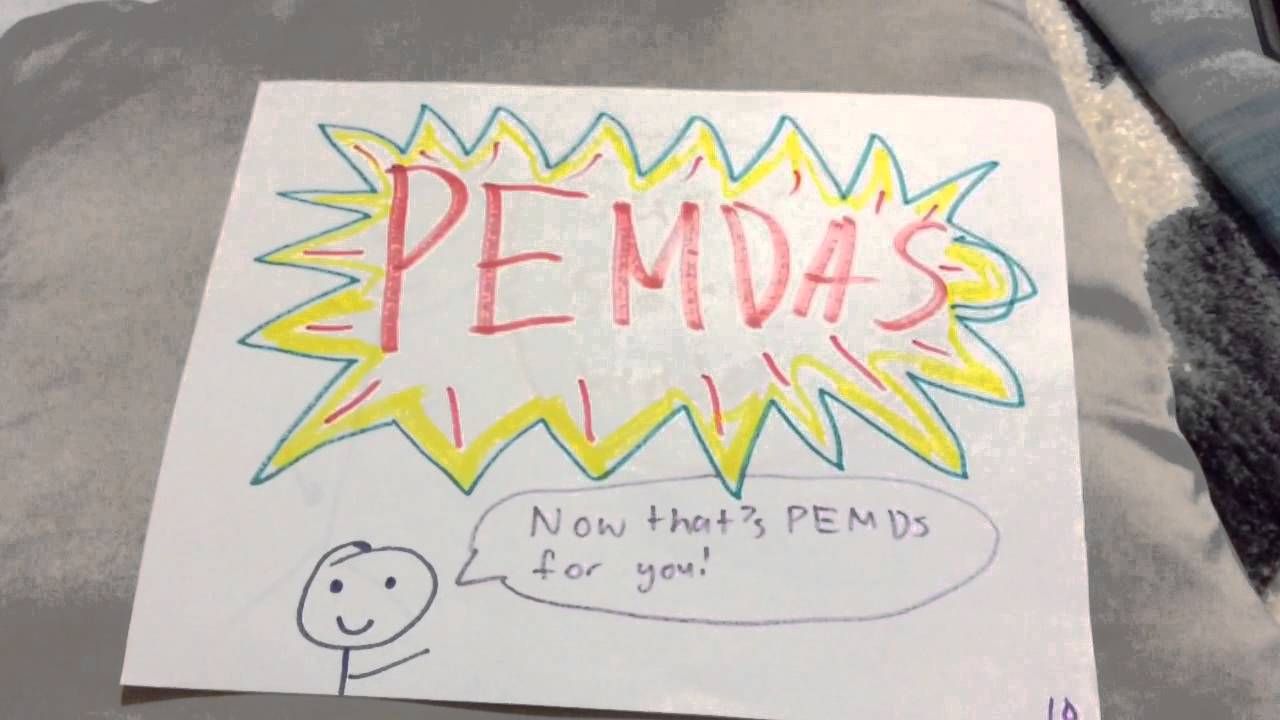 PEMDAS
Now that's PEMDs
for you!
10